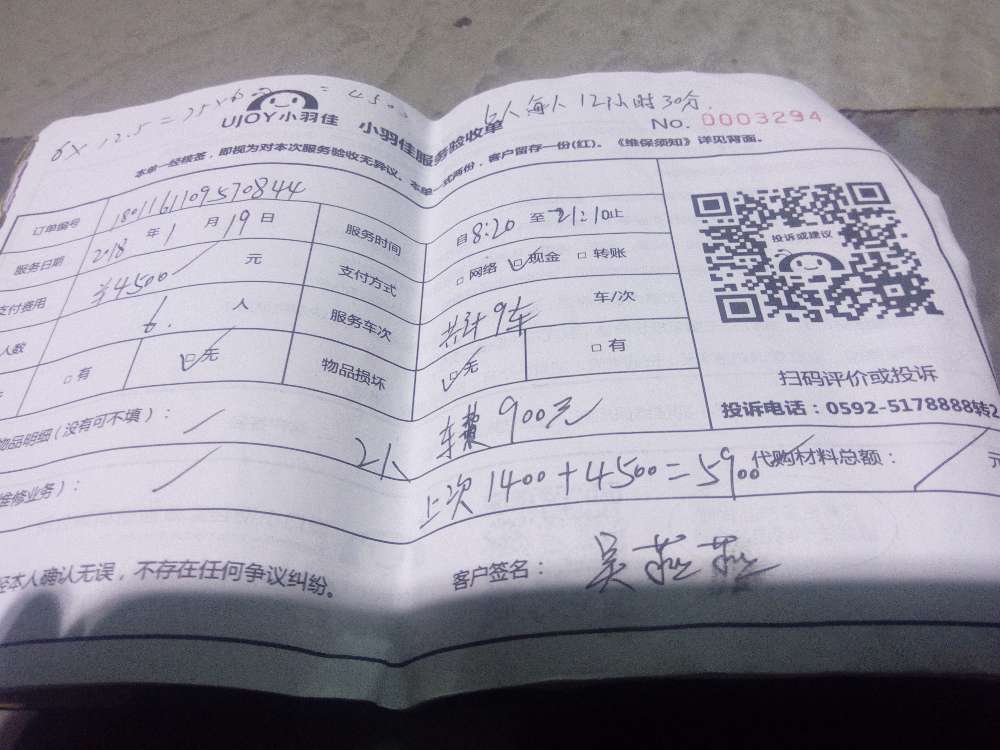 6×12.5=75×6 = 450
6人每人12小时30分.
UJOY小羽佳 小羽佳服务验收单 No. 0003294
本单一经核签，即视为对本次服务验收无异议。本单一式两份，客户留存一份(红)。《维保须知》详见背面。
订单编号 1801161109570844 服务时间 自8:20至21:10止
服务日期 2018年1月19日 支付方式 □网络 □现金 □转账
支付费用 ¥4500 元 服务车次 共计9车 车/次
人数 6. 人 物品损坏 □无 □有
□有 □无
投诉或建议
扫码评价或投诉
投诉电话：0592-5178888转2
物品明细(没有可不填)： 车费900元
维修业务)： 上次1400+4500=5900 代购材料总额： 元
经本人确认无误，不存在任何争议纠纷。 客户签名： 吴